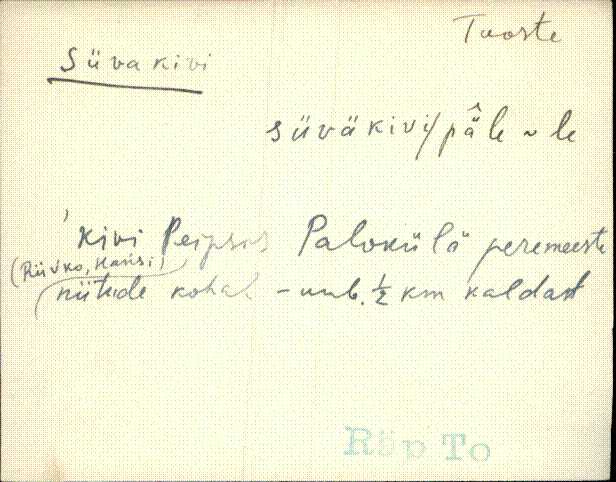 Tooste
Süvakivi
süväkivi/päle ~ le
'kivi Peipsis Palokülä peremeeste
(Riivko, Hansi)
niitude kohal - umb. ½ km kaldast
Räp To